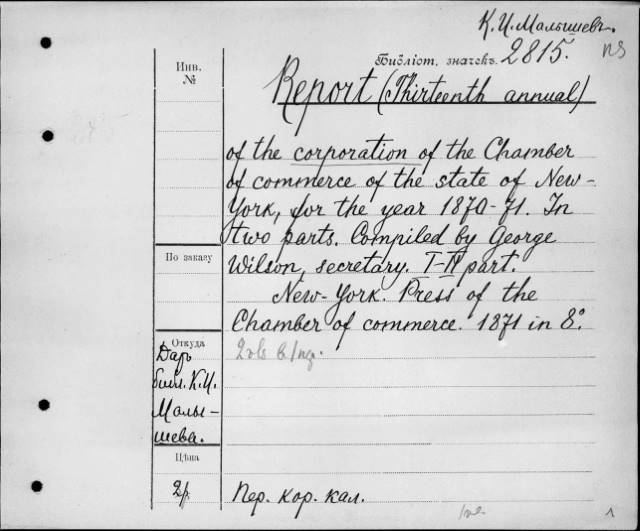 К. И. Малышевъ.
Библіот. значекъ. 2815.
Инв.
№
Report (Thirteenth annual)
of the corporation of the Chamber
of commerce of the state of New-
York, for the year 1870-71. In
two parts. Compiled by George
Wilson, secretary. I-II part.
New-York. Press of the
Chamber of commerce. 1871 in 8°.
По заказу
Откуда
Даръ
библ. К. И.
Малы-
шева.
Цѣна
2р.
Пер. кор. кал.